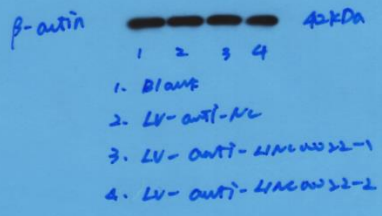 β-actin 42kDa
1 2 3 4
1. Blank
2. LV-anti-NC
3. LV-anti-LINC00022-1
4. LV-anti-LINC00022-2